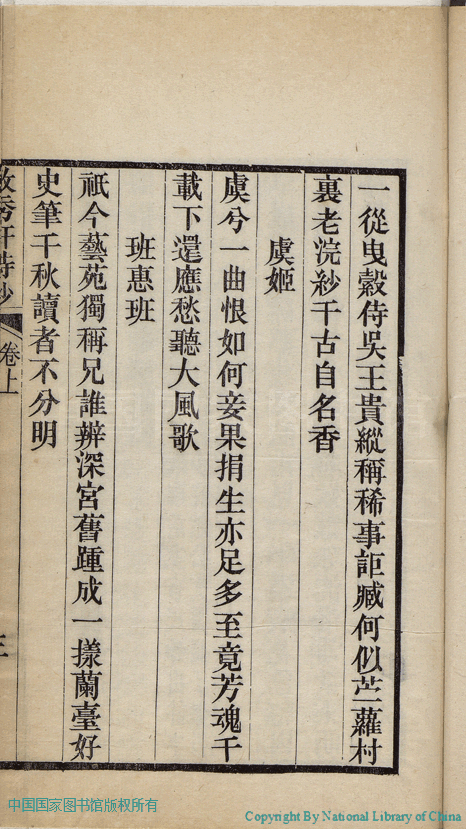 一從曳縠侍吳王貴縱稱稀事詎臧何似苎蘿村
裏老浣紗千古自名香
虞姬
虞兮一曲恨如何妾果捐生亦足多至竟芳魂千
載下還應愁聽大風歌
班惠班
祇今藝苑獨稱兄誰辨深宮舊踵成一㨾蘭臺好
史筆千秋讀者不分明
秀軒詩鈔
卷上
三
中国国家图书馆版权所有
Copyright By National Library of China